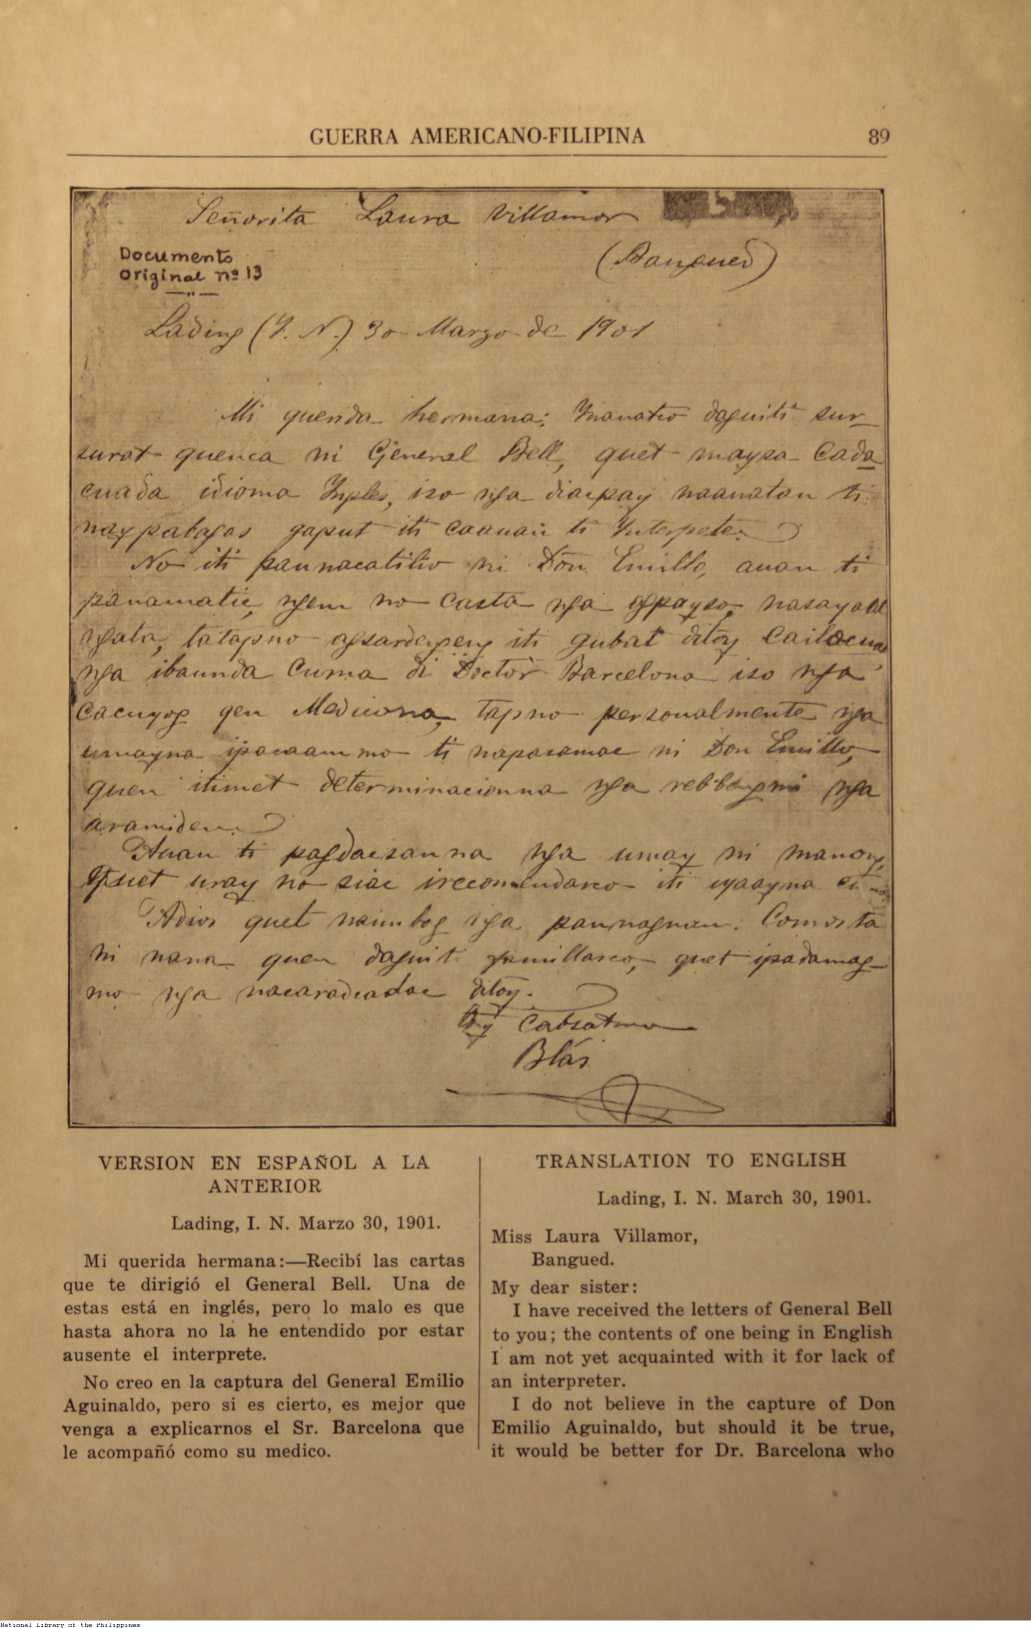 GUERRA AMERICANO-FILIPINA 89
Señorita Laura Villamor
(Bangued)
Documento
Original nº 13
Lading (I. N.) 30 Marzo de 1901
Mi querida hermana: Inauatco daguiti sur-
surat quenca ni General Bell, quet maysa cada
cuada idioma Ingles, iso nga diacpay naauatan ti
naypatagas gaput iti caauan ti Interpete.
No iti pannacatiliw ni Don Emilio, auan ti
panamatic, ngem no casta nga agpayso, nasayaat
ngata, tatapno agsardeng iti gubat ditoy
nga ibaunda cuma di Doctor Barcelona iso nga
cacuyog quen Medicona, tapno personalmente nga
umayna ipacaammo ti napasamac ni Don Emilio,
quen itimet determinacionna nga rebbengmi nga
aramiden.
Auan ti pagdacsanna nga umay ni manong,
quet uray no siac irecomendarco iti
Adios quet naimbag nga pannagnam. Comosta
ni nana quen daguiti familiares, quet ipadamag-
mo nga nacaradcadac ditoy.
Ti Cabsatmo
Blás
VERSION EN ESPAÑOL A LA
ANTERIOR
Lading, I. N. Marzo 30, 1901.
Mi querida hermana:—Recibí las cartas
que te dirigió el General Bell. Una de
estas está en inglés, pero lo malo es que
hasta ahora no la he entendido por estar
ausente el interprete.
No creo en la captura del General Emilio
Aguinaldo, pero si es cierto, es mejor que
venga a explicarnos el Sr. Barcelona que
le acompañó como su medico.
TRANSLATION TO ENGLISH
Lading, I. N. March 30, 1901.
Miss Laura Villamor,
Bangued.
My dear sister:
I have received the letters of General Bell
to you; the contents of one being in English
I am not yet acquainted with it for lack of
an interpreter.
I do not believe in the capture of Don
Emilio Aguinaldo, but should it be true,
it would be better for Dr. Barcelona who
National Library of the Philippines